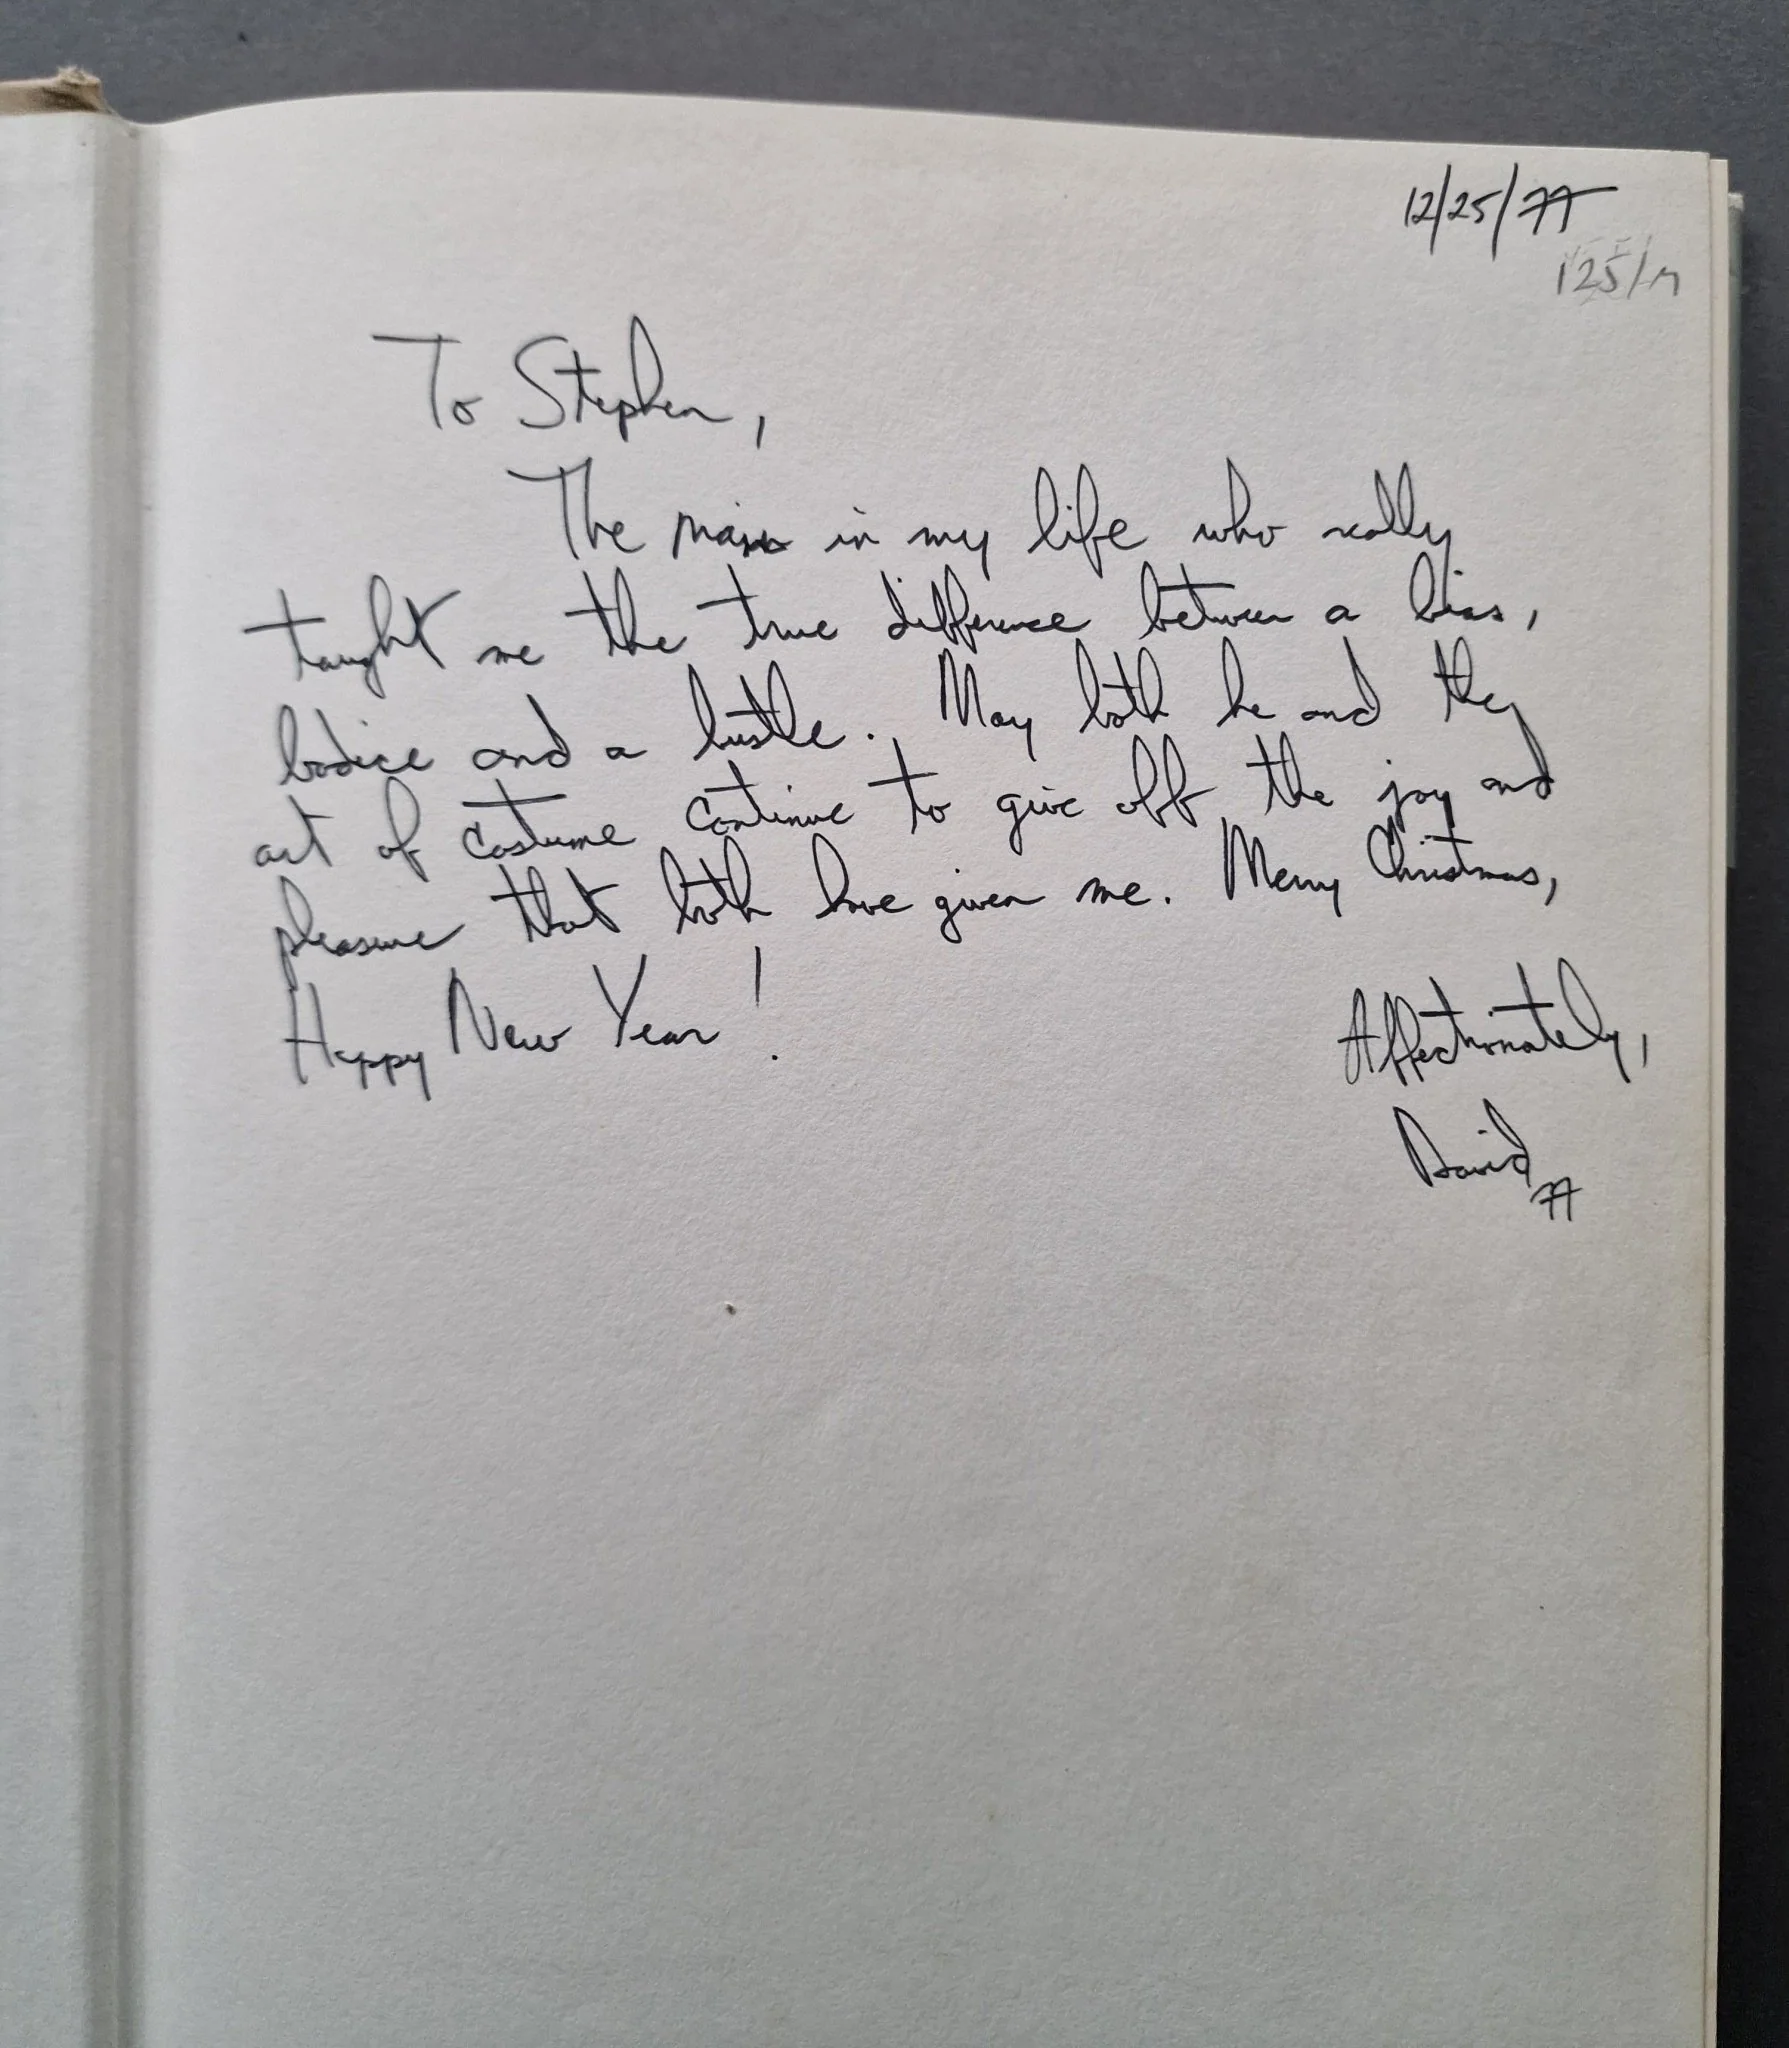 12/25/77
125/
To Stephen,
The man in my life who really
taught me the true difference between a bias,
bodice and a bustle. May both he and they
art of costume continue to give off the joy and
pleasure that both have given me. Merry Christmas,
Happy New Year!
Affectionately,
David
77